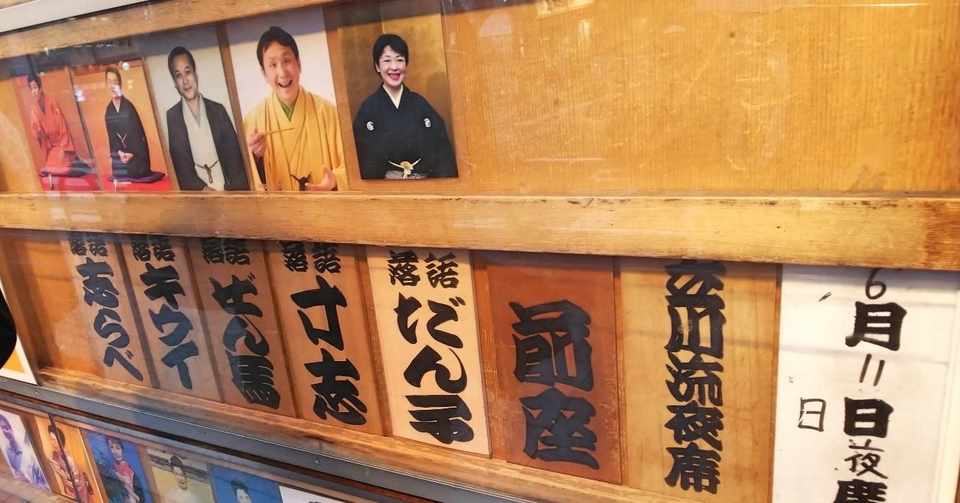 6月11日夜席
日
立川流夜席
前座
落語
だん子
落語
寸志
落語
ぜん馬
落語
キウイ
落語
志らべ